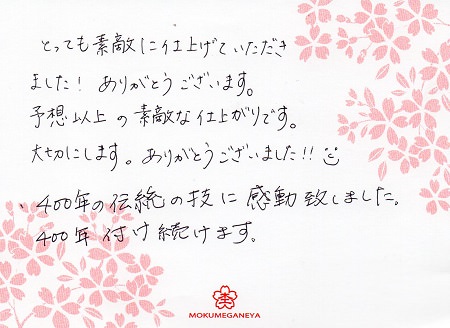 とっても素敵に仕上げていただき
ました！ ありがとうございます。
予想以上の素敵な仕上がりです。
大切にします。ありがとうございました!!
、400年の伝統の技に感動致しました。
400年付け続けます。
MOKUMEGANEYA